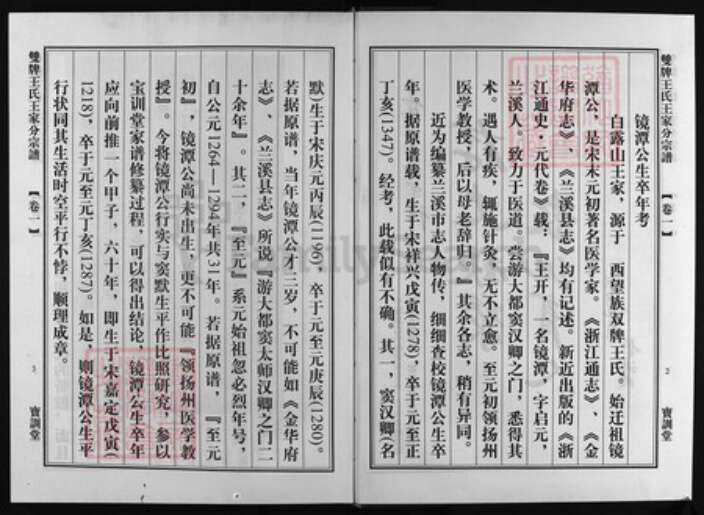 雙牌王氏王家分宗譜
【卷一】
2
寶訓堂
镜潭公生卒年考
白露山王家，源于 西望族双牌王氏。始迁祖镜
潭公，是宋末元初著名医学家。《浙江通志》、《金
华府志》、《兰溪县志》均有记述。新近出版的《浙
江通史·元代卷》载：『王开，一名镜潭，字启元，
兰溪人。致力于医道。尝游大都窦汉卿之门，悉得其
术。遇人有疾，辄施针灸，无不立愈。至元初领扬州
医学教授，后以母老辞归。』其余各志，稍有异同。
近为编纂兰溪市志人物传，细细查校镜潭公生卒
年。据原谱载，生于宋祥兴戊寅(1278)，卒于元至正
丁亥(1347)。经考，此载似有不确。其一，窦汉卿(名
默)生于宋庆元丙辰(1196)，卒于元至元庚辰(1280)。
若据原谱，当年镜潭公才三岁，不可能如《金华府
志》、《兰溪县志》所说『游大都窦太师汉卿之门二
十余年』。其二，『至元』系元始祖忽必烈年号，
自公元1264—1294年共31年。若据原谱，『至元
初』，镜潭公尚未出生，更不可能『领扬州医学教
授』。今将镜潭公行实与窦默生平作比照研究，参以
宝训堂家谱修纂过程，可以得出结论，镜潭公生卒年
应向前推一个甲子，六十年，即生于宋嘉定戊寅(
1218)，卒于元至元丁亥(1287)。如是，则镜潭公生平
行状同其生活时空平行不悖，顺理成章。
雙牌王氏王家分宗譜
【卷一】
3
寶訓堂